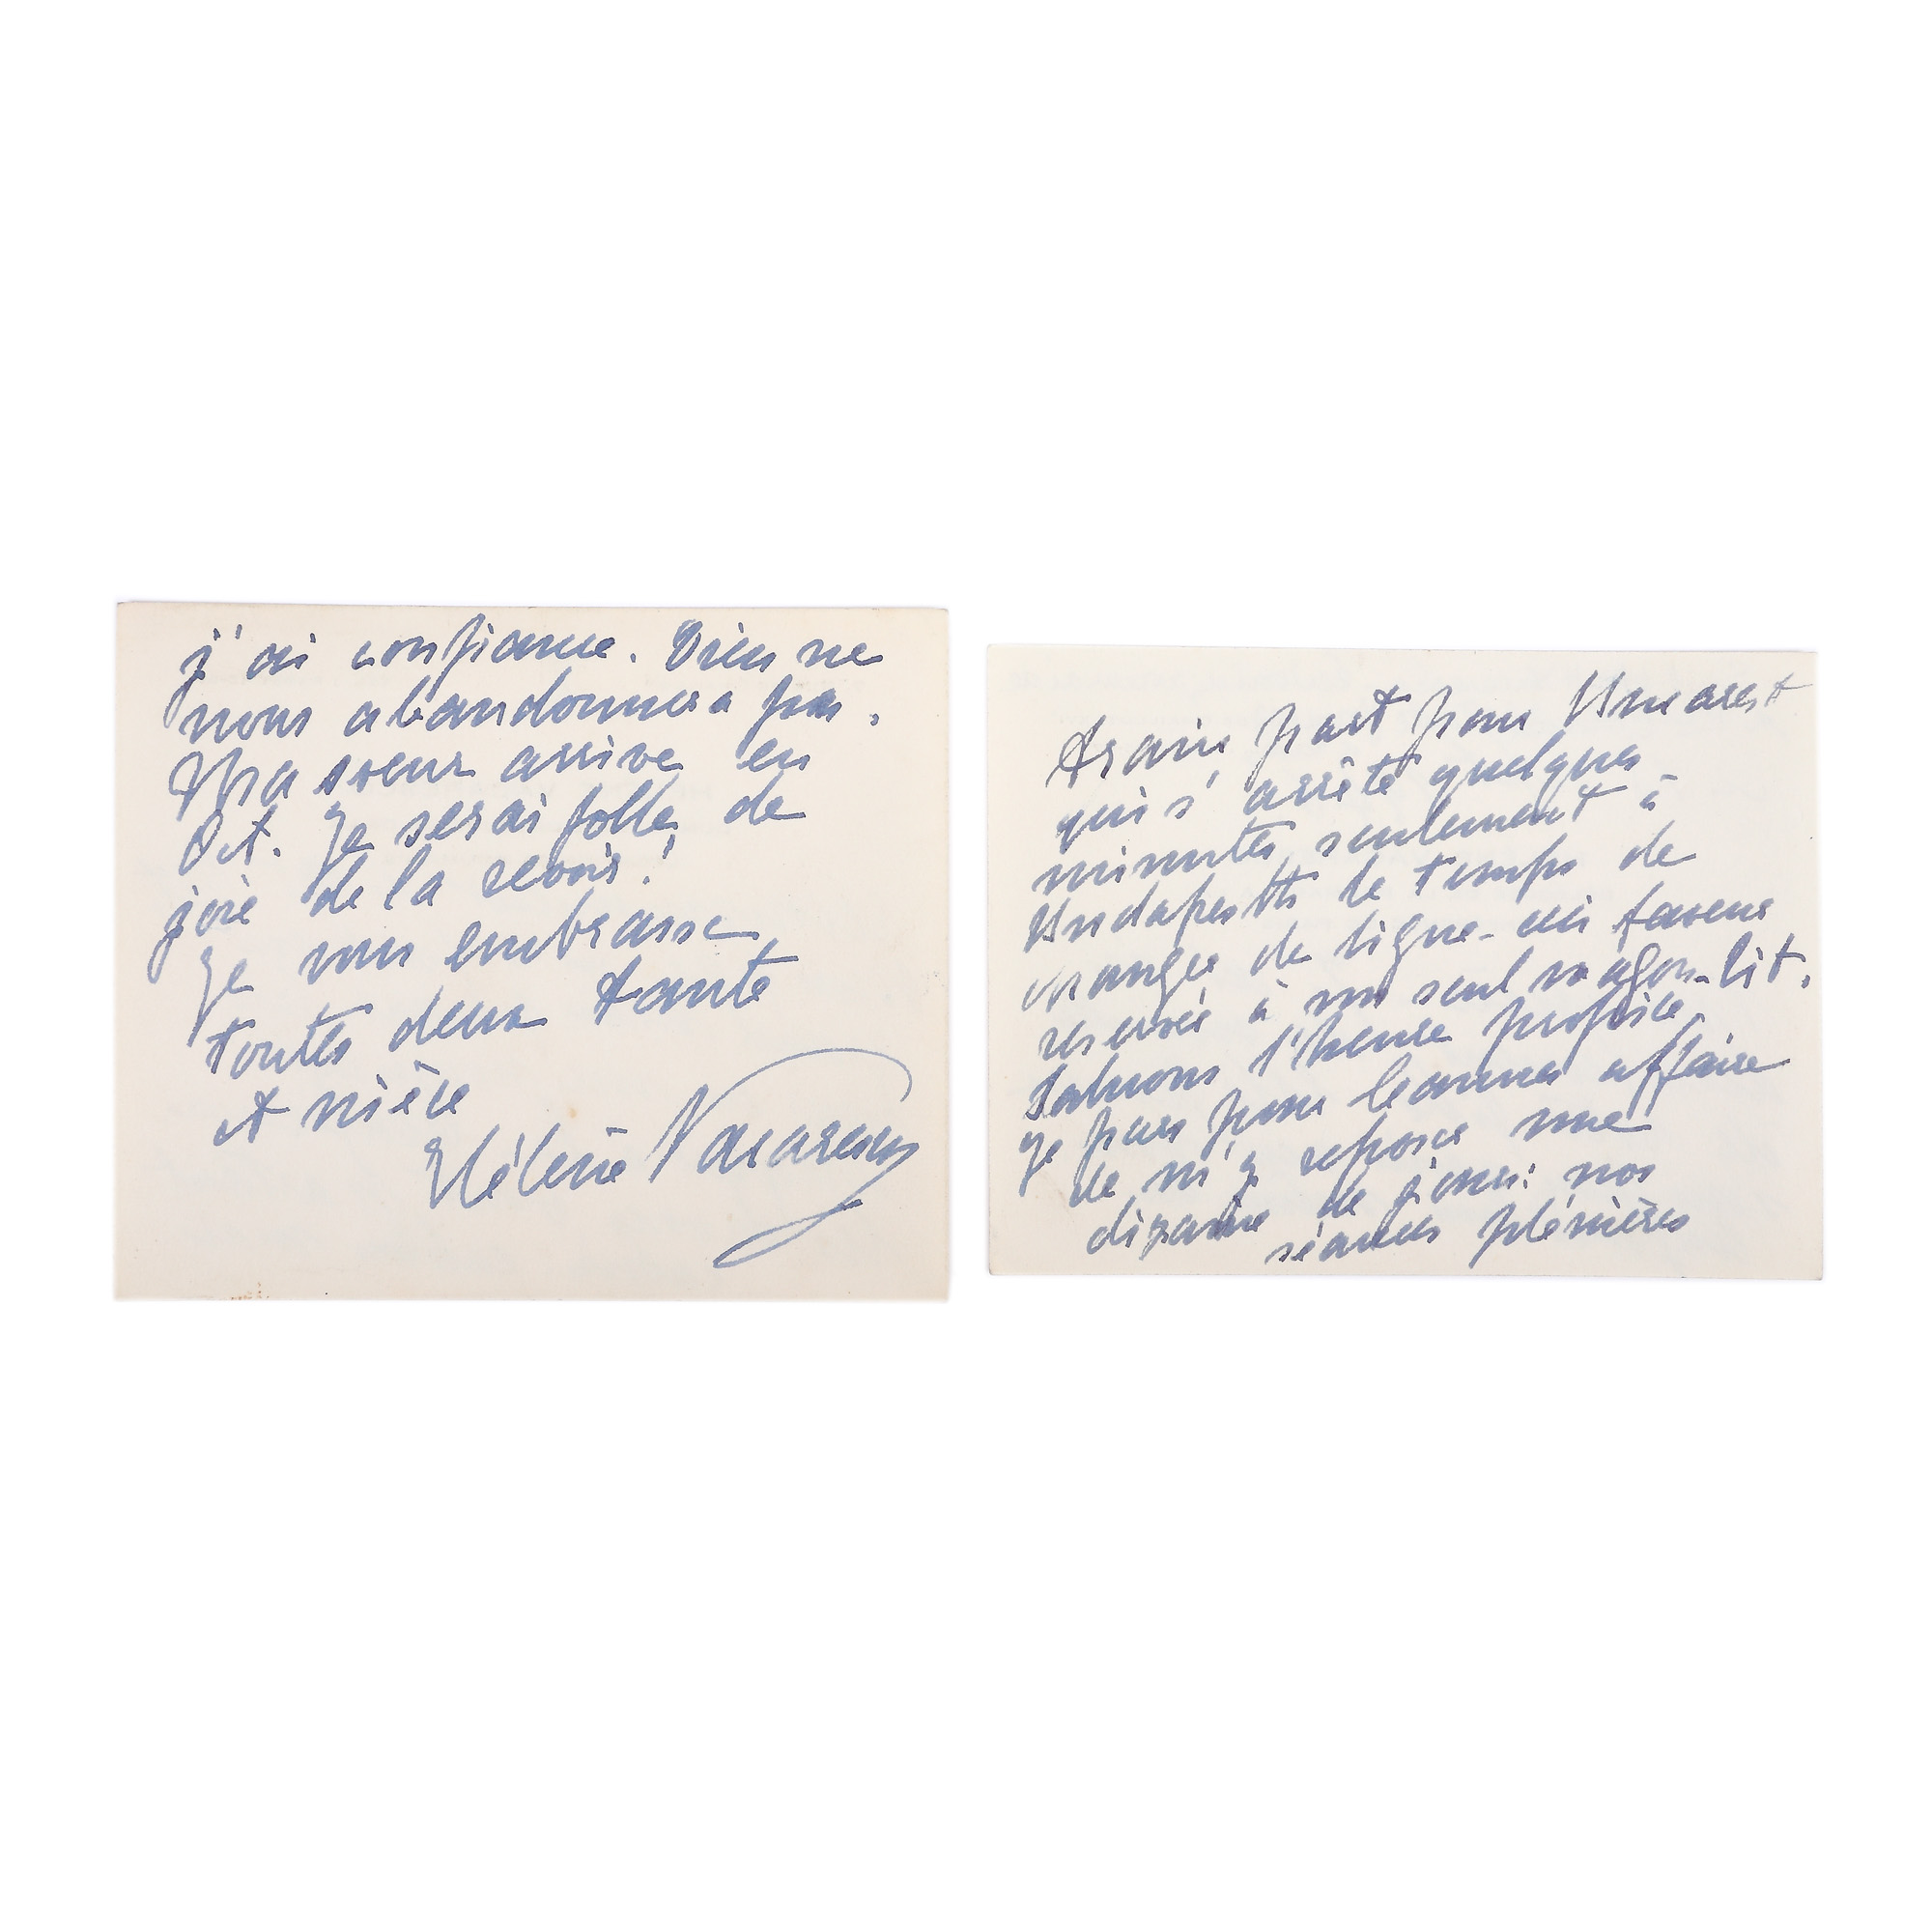 j'ai confiance. Dieu ne
nous abandonnera pas.
Ma soeur arrive en
Oct. Je serai folle de
joie de la revoir!
Je vous embrasse
toutes deux tante
et nièce
Hélène Vacaresco
train part pour Bucarest
qui s'arrête quelques
minutes seulement à
Budapest le temps de
changer de ligne
reservée à un seul wagon-lit.
Saluons l'heure propice
Je pars pour affaire
de m'y reposer une
dizaine de jours: nos
séances plénières